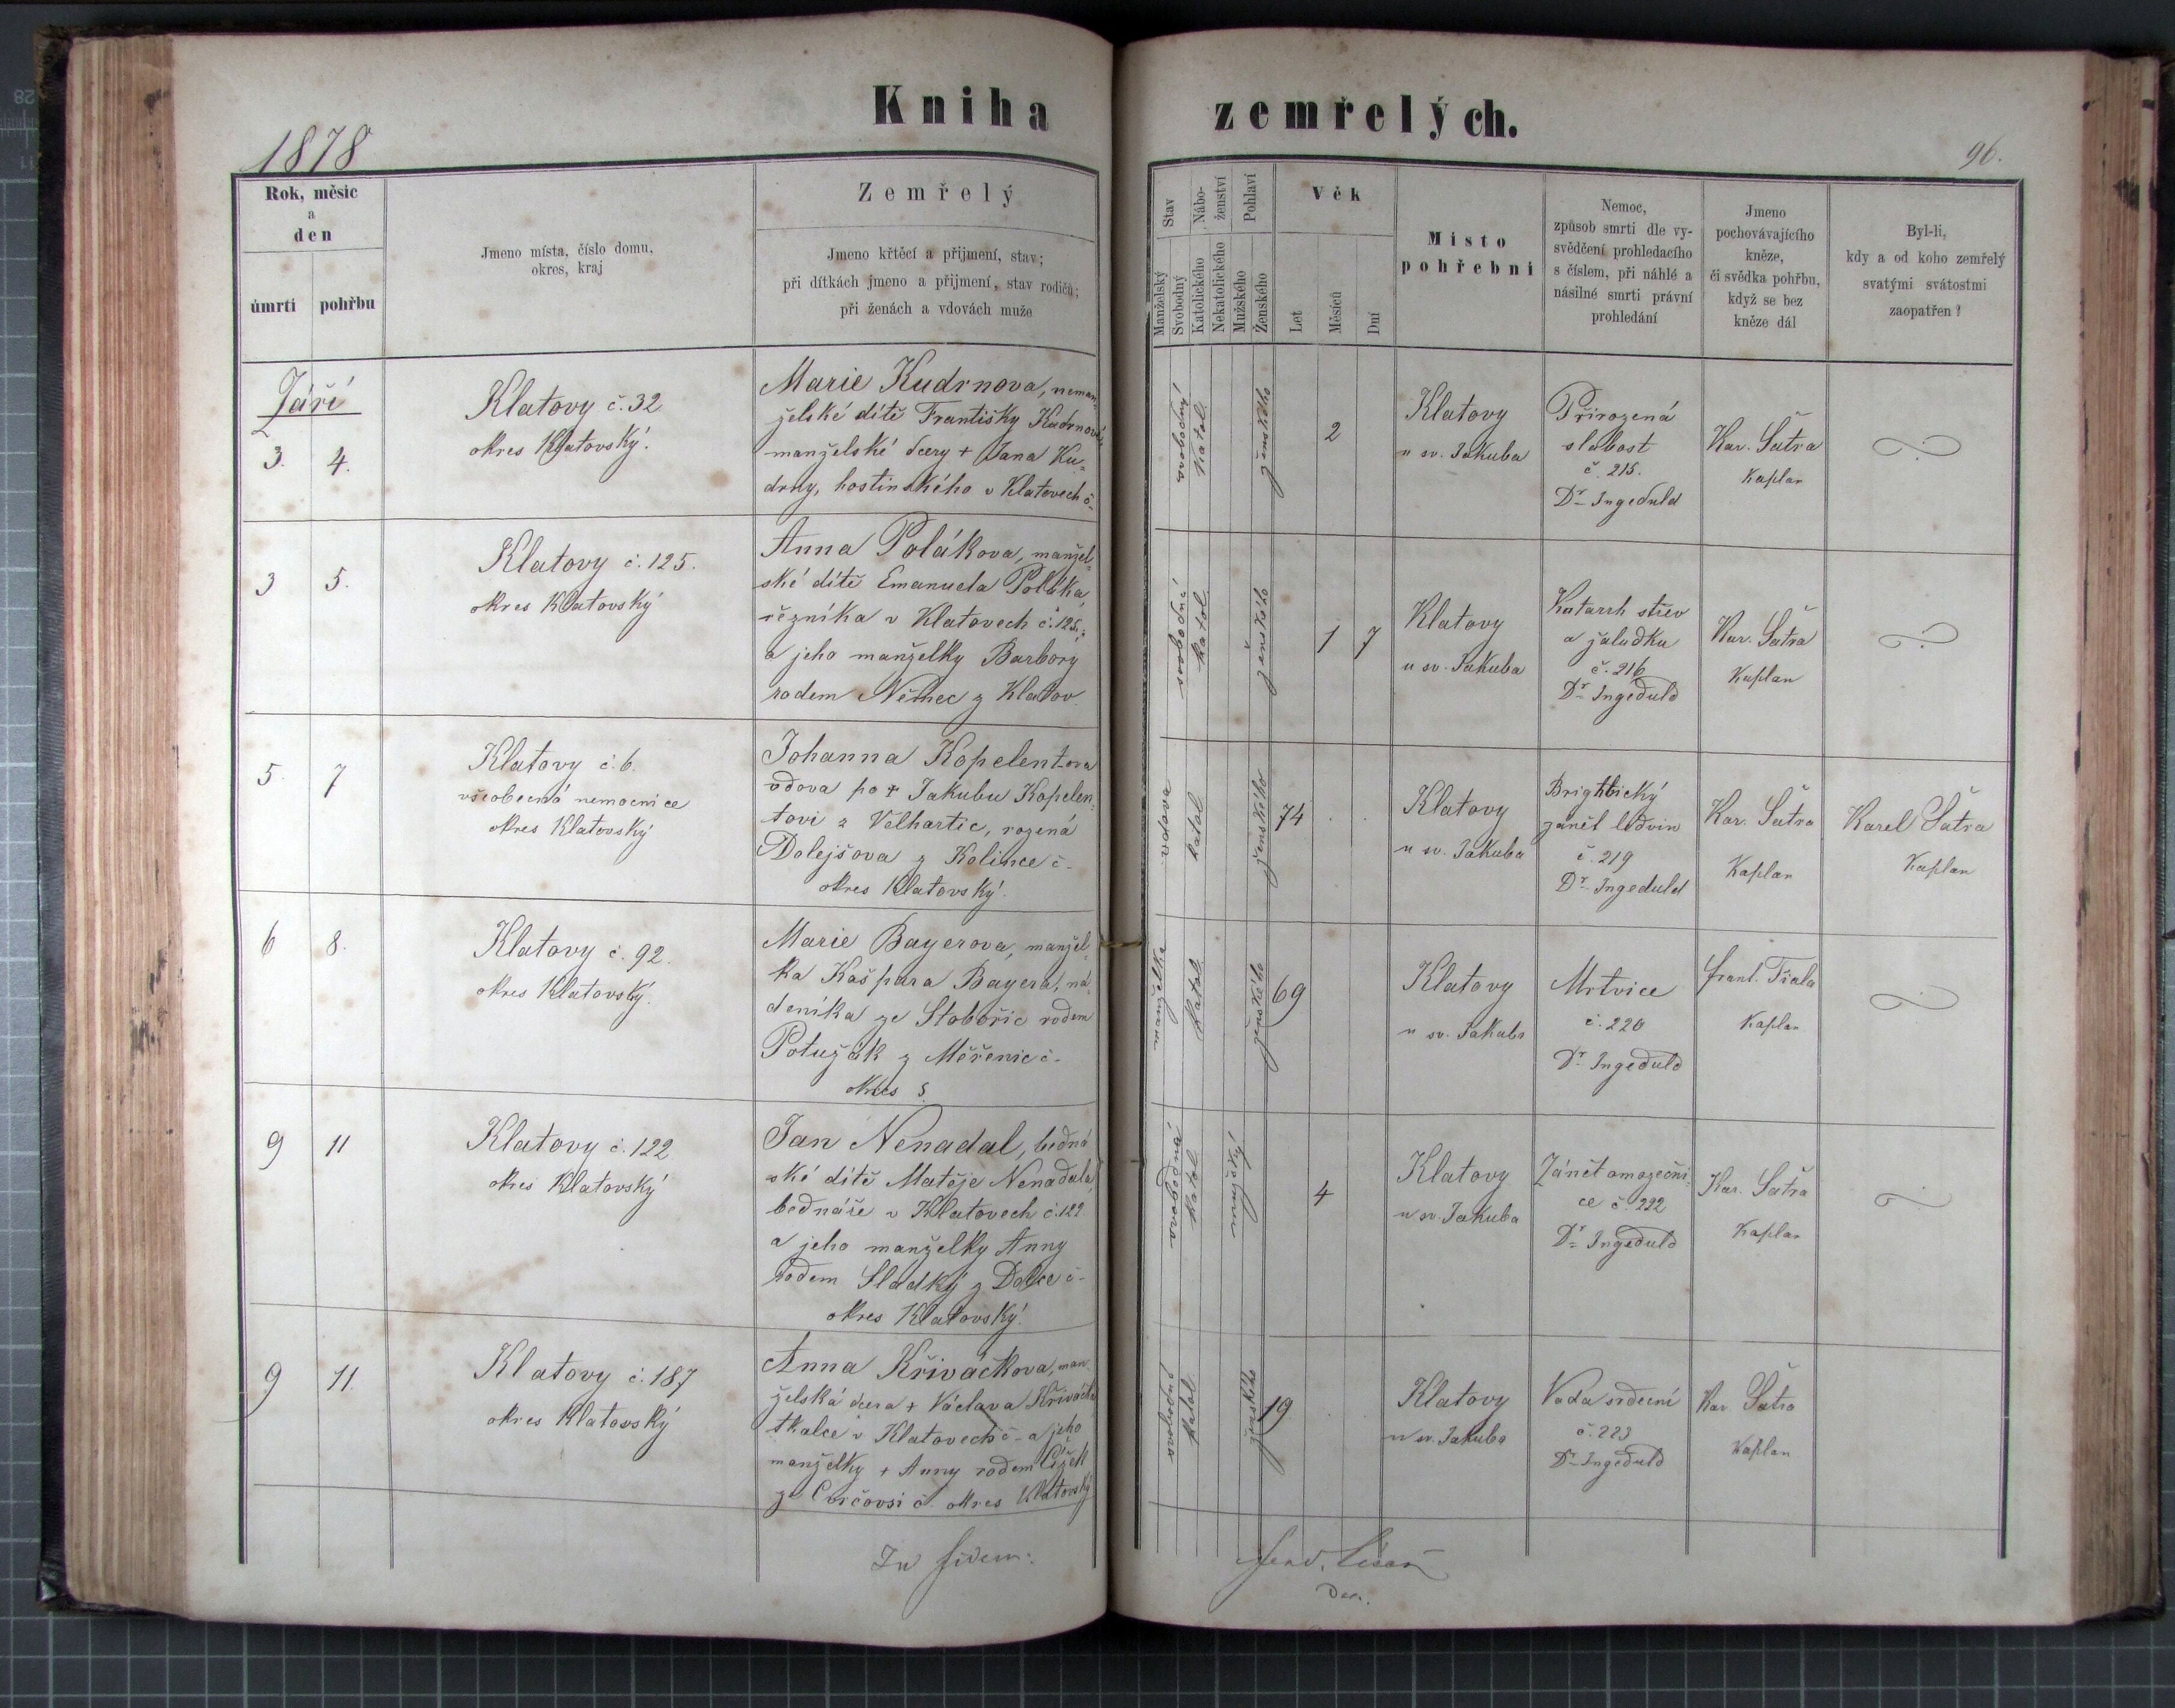 Kniha zemřelých.
1878
96.
Rok, měsíc
a
den
úmrtí pohřbu
Jmeno místa, číslo domu,
okres, kraj
Zemřelý
Jmeno křtěcí a přijmení, stav;
při dítkách jmeno a přijmení, stav rodičů;
při ženách a vdovách muže
Stav
Manželský
Svobodný
Nábo-
ženství
Katolického
Nekatolického
Pohlaví
Mužského
Ženského
Věk
Let
Měsíců
Dní
Místo
pohřební
Nemoc,
způsob smrti dle vy-
svědčení prohledacího
s číslem, při náhlé a
násilné smrti právní
prohledání
Jmeno
pochovávajícího
kněze,
či svědka pohřbu,
když se bez
kněze dál
Byl-li,
kdy a od koho zemřelý
svatými svátostmi
zaopatřen?
Září
3. 4.
Klatovy č. 32
okres Klatovský.
Marie Kudrnova, neman-
želské dítě Františky Kudrnové
manželské dcery + Jana Ku-
drny, hostinského v Klatovech č-
svobodný
katol.
ženského
2
Klatovy
u sv. Jakuba
Přirozená
slabost
č. 215.
Dr Ingeduld
Kar. Šatra
Kaplan
3 5.
Klatovy č. 125.
okres Klatovský
Anna Polákova, manžel-
ské dítě Emanuela Poláka,
řezníka v Klatovech č. 125.,
a jeho manželky Barbory
rodem Němec z Klatov.
svobodná
katol.
ženského
1 7
Klatovy
u sv. Jakuba
Katarrh střev
a žaludku
č. 216
Dr Ingeduld
Kar. Šatra
Kaplan
5. 7
Klatovy č. 6.
všeobecná nemocnice
okres Klatovský
Johanna Kopelentova
vdova po + Jakubu Kopelen-
tovi z Velhartic, rozená
Dolejšova z Kolince č-
okres Klatovský.
vdova
katol
ženského
74
Klatovy
u sv. Jakuba
Brightický
zánět ledvin
č. 219
Dr Ingeduld
Kar. Šatra
Kaplan
Karel Šatra
Kaplan
6 8.
Klatovy č. 92.
okres Klatovský.
Marie Bayerova, manžel-
ka Kašpara Bayera, ná-
deníka ze Stobořic rodem
Potužák z Měřenic č-
okres
manželka
katol.
ženského
69
Klatovy
u sv. Jakuba
Mrtvice
č. 220
Dr Ingeduld
Frant. Fiala
Kaplan
9 11
Klatovy č. 122
okres Klatovský
Jan Nenadal, bedná
ské dítě Matěje Nenadala,
bednáře v Klatovech č. 122
a jeho manželky Anny
rodem Sladký z Dolce č-
okres Klatovský.
svobodná
katol.
mužský
4
Klatovy
u sv. Jakuba
Zánět omozečni-
ce č. 222
Dr Ingeduld
Kar. Šatra
Kaplan
9 11.
Klatovy č. 187
okres Klatovský
Anna Křiváčkova, man-
želská dcera + Václava Křiváčka
tkalce v Klatovech č- a jeho
manželky + Anny rodem Čížek
ze okres Klatovský
svobodná
katol
ženského
19
Klatovy
u sv. Jakuba
Vada srdeční
č. 223
Dr Ingeduld
Kar. Šatra
Kaplan
In fidem:
Ferd. Císař